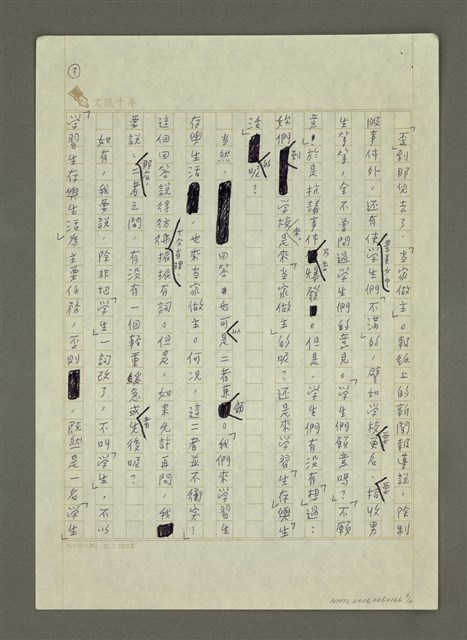 ③
文訊十年
「歪」到那兒去了,「當家做主」。報紙上的新聞報導說,除制
服事件外,還有使學生們「不滿」的,譬如學校要更名、要招收男
生等等,全不曾問過學生們的意見。「學生們願意嗎?」「不願
意!」於是抗議事件乃告爆發。但是,學生們有沒有「想」過:
妳們到學校來,是來「當家做主」的呢?還是來「學習生存與生
活」的呢?
當然,回答也可以是二者兼顧。「我們來學習生
存與生活,也來當家做主。何況,這二者並不衝突!」
這個回答說得彷彿十分有理,振振有詞。但是,如果允許再問,我
要說:那麼,二者之間,有沒有一個輕重緩急或先後呢?
如有,我要說,除非把「學生」一詞改了,不叫「學生」,不以
「學習生存與生活」為主要任務,否則,既然是一名「學生」
NMTL20160260166